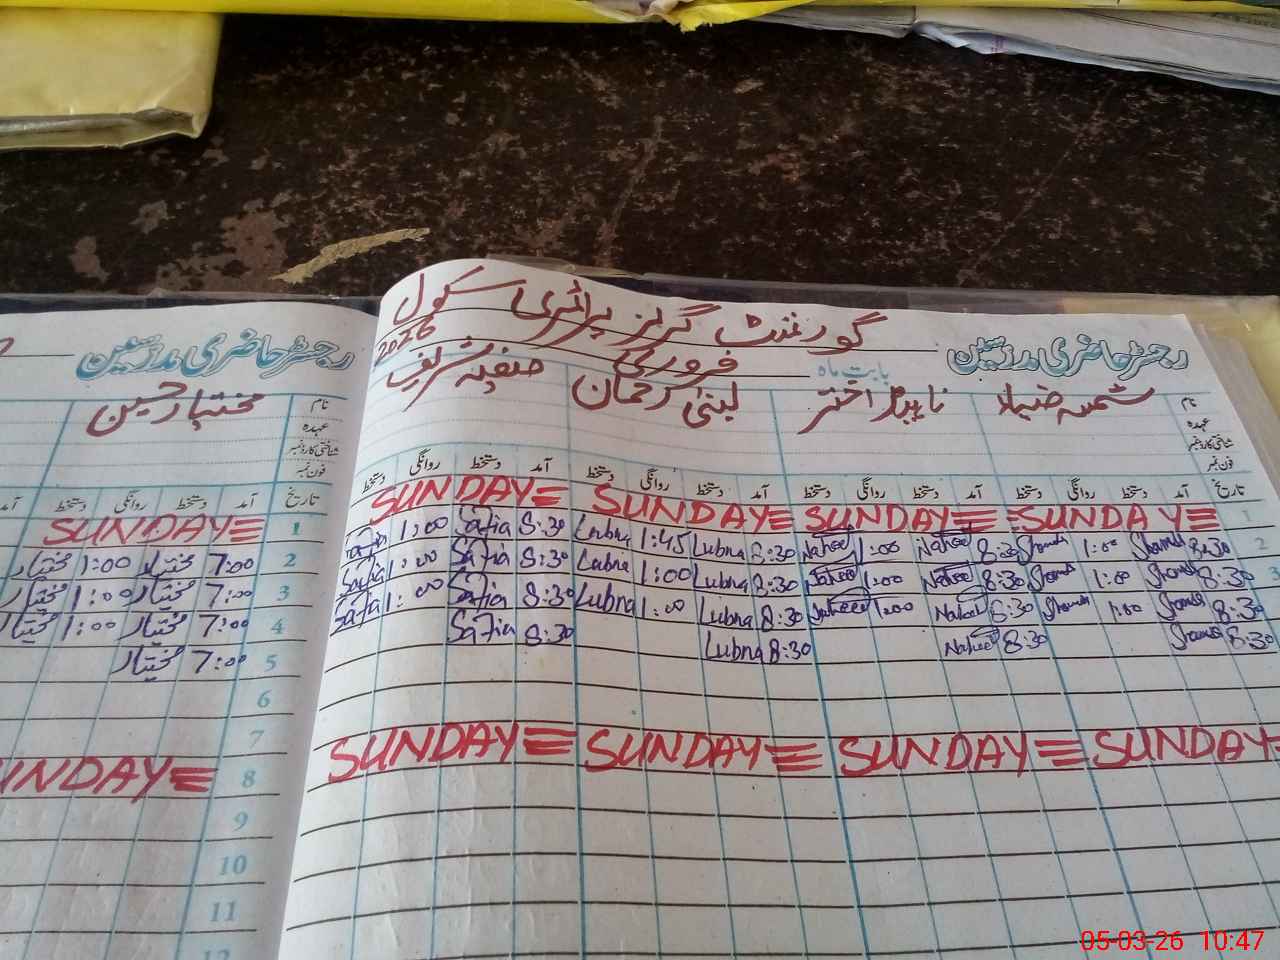 گورنمنٹ گرلز پرائمری سکول
رجسٹر حاضری مدرسین بابت ماہ فروری 2026
نام شمسہ ضیاء ناہید اختر لبنیٰ رحمان صفیہ شریف
عہدہ
شناختی کارڈ نمبر
فون نمبر
تاریخ آمد دستخط روانگی دستخط آمد دستخط روانگی دستخط آمد دستخط روانگی دستخط آمد دستخط روانگی دستخط
1 SUNDAY SUNDAY SUNDAY SUNDAY
2 8:30 Shamsa 1:00 Shamsa 8:30 Naheed 1:00 Naheed 8:30 Lubna 1:45 Lubna 8:30 Safia 1:00 Safia
3 8:30 Shamsa 1:00 Shamsa 8:30 Naheed 1:00 Naheed 8:30 Lubna 1:00 Lubna 8:30 Safia 1:00 Safia
8:30 Shamsa 1:00 Shamsa 8:30 Naheed 1:00 Naheed 8:30 Lubna 1:00 Lubna 8:30 Safia 1:00 Safia
8:30 Shamsa 8:30 Naheed 8:30 Lubna 8:30 Safia
SUNDAY SUNDAY SUNDAY SUNDAY
رجسٹر حاضری مدرسین
نام مختیار حسین
عہدہ
شناختی کارڈ نمبر
فون نمبر
تاریخ آمد دستخط روانگی دستخط آمد
1 SUNDAY
2 7:00 مختیار 1:00 مختیار
3 7:00 مختیار 1:00 مختیار
4 7:00 مختیار 1:00 مختیار
5 7:00 مختیار
6
7
8 SUNDAY
9
10
11
12
05-03-26 10:47